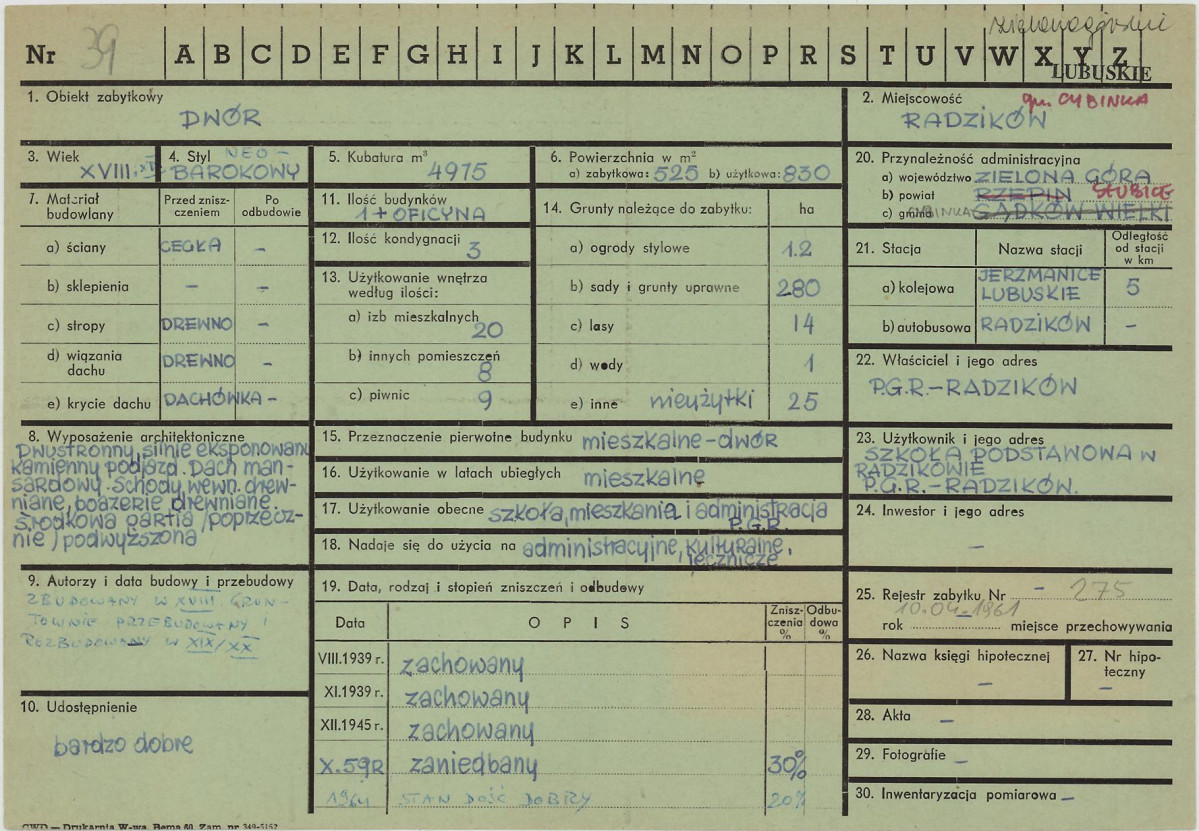 zielonogórski
Nr 39 A B C D E F G H I J K L M N O P R S T U V W X Y Z
LUBUSKIE
1. Obiekt zabytkowy
DWÓR
2. Miejscowość
gm. CYBINKA
RADZIKÓW
3. Wiek
XVIII
4. Styl NEO-
BAROKOWY
5. Kubatura m³
4975
6. Powierzchnia w m²
a) zabytkowa: 525 b) użytkowa: 830
7. Materiał budowlany
Przed zniszczeniem
Po odbudowie
a) ściany CEGŁA –
b) sklepienia – –
c) stropy DREWNO –
d) wiązania dachu DREWNO –
e) krycie dachu DACHÓWKA –
11. Ilość budynków
1 + OFICYNA
12. Ilość kondygnacji
3
13. Użytkowanie wnętrza
według ilości:
a) izb mieszkalnych
20
b) innych pomieszczeń
8
c) piwnic 9
14. Grunty należące do zabytku: ha
a) ogrody stylowe 1.2
b) sady i grunty uprawne 280
c) lasy 14
d) wody 1
e) inne nieużytki 25
20. Przynależność administracyjna
a) województwo ZIELONA GÓRA
b) powiat RZEPIN SŁUBICE
c) gmina CYBINKA GĄDKÓW WIELKI
21. Stacja
Nazwa stacji
Odległość
od stacji
w km
a) kolejowa JERZMANICE
LUBUSKIE 5
b) autobusowa RADZIKÓW –
22. Właściciel i jego adres
P.G.R.–RADZIKÓW
8. Wyposażenie architektoniczne
Dwustronny, silnie eksponowany
kamienny podjazd. Dach man-
sardowy. Schody wewn. drew-
niane, boazerie drewniane.
Środkowa partia /poprzecz-
nie/ podwyższona
15. Przeznaczenie pierwotne budynku mieszkalne–dwór
16. Użytkowanie w latach ubiegłych mieszkalne
17. Użytkowanie obecne szkoła, mieszkania i administracja
P.G.R.
18. Nadaje się do użycia na administracyjne, kulturalne,
lecznicze
23. Użytkownik i jego adres
SZKOŁA PODSTAWOWA w
RADZIKOWIE
P.G.R.–RADZIKÓW.
24. Inwestor i jego adres
–
9. Autorzy i data budowy i przebudowy
ZBUDOWANY W XVIII. GRUN-
TOWNIE PRZEBUDOWANY I
ROZBUDOWANY W XIX/XX
10. Udostępnienie
bardzo dobre
19. Data, rodzaj i stopień zniszczeń i odbudowy
Data
O P I S
Zniszczenia %
Odbudowa %
VIII.1939 r. zachowany
XI.1939 r. zachowany
XII.1945 r. zachowany
X.59R zaniedbany 30%
1964 STAN DOŚĆ DOBRY 20%
25. Rejestr zabytku Nr – 275
10.04–1961
rok miejsce przechowywania
26. Nazwa księgi hipotecznej
–
27. Nr hipo-
teczny
–
28. Akta –
29. Fotografie –
30. Inwentaryzacja pomiarowa –
CWD — Drukarnia W-wa, Bema 60. Zam. nr 349-5152